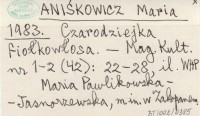 ANIŚKOWICZ Maria
1983. Czarodziejka
Fiołkowłosa. - Mag. Kult.
nr 1-2 (42): 22-28 il. WHP
Maria Pawlikowska-
-Jasnorzewska, m.in. w Zakopanem.